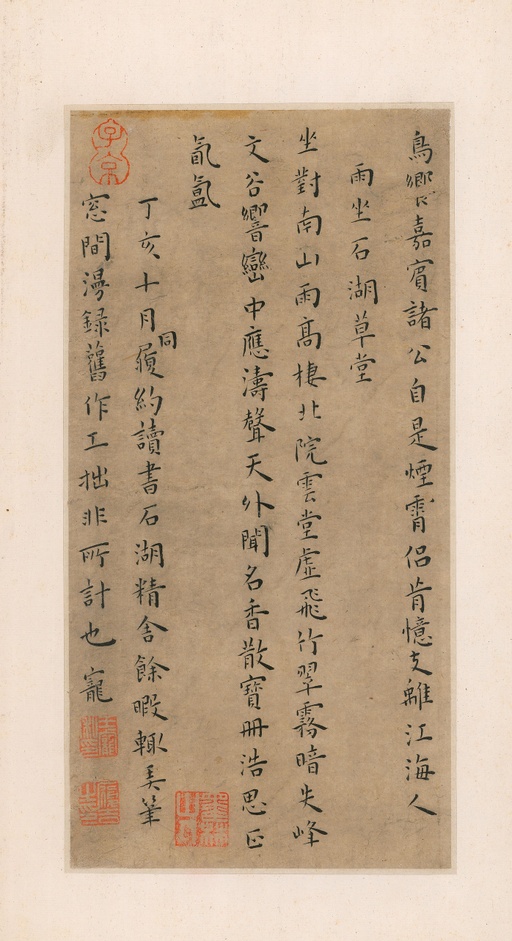 鳥嘉賓諸公自是煙霄侶肯憶支離江海人
雨坐石湖草堂
坐對南山雨高棲北院雲堂虛飛竹翠霧暗失峰
文谷響巒中應濤聲天外聞名香散寶冊浩思正
氤氳
丁亥十月同履約讀書石湖精舍餘暇輙弄筆
窓間漫録舊作工拙非所計也寵
子京